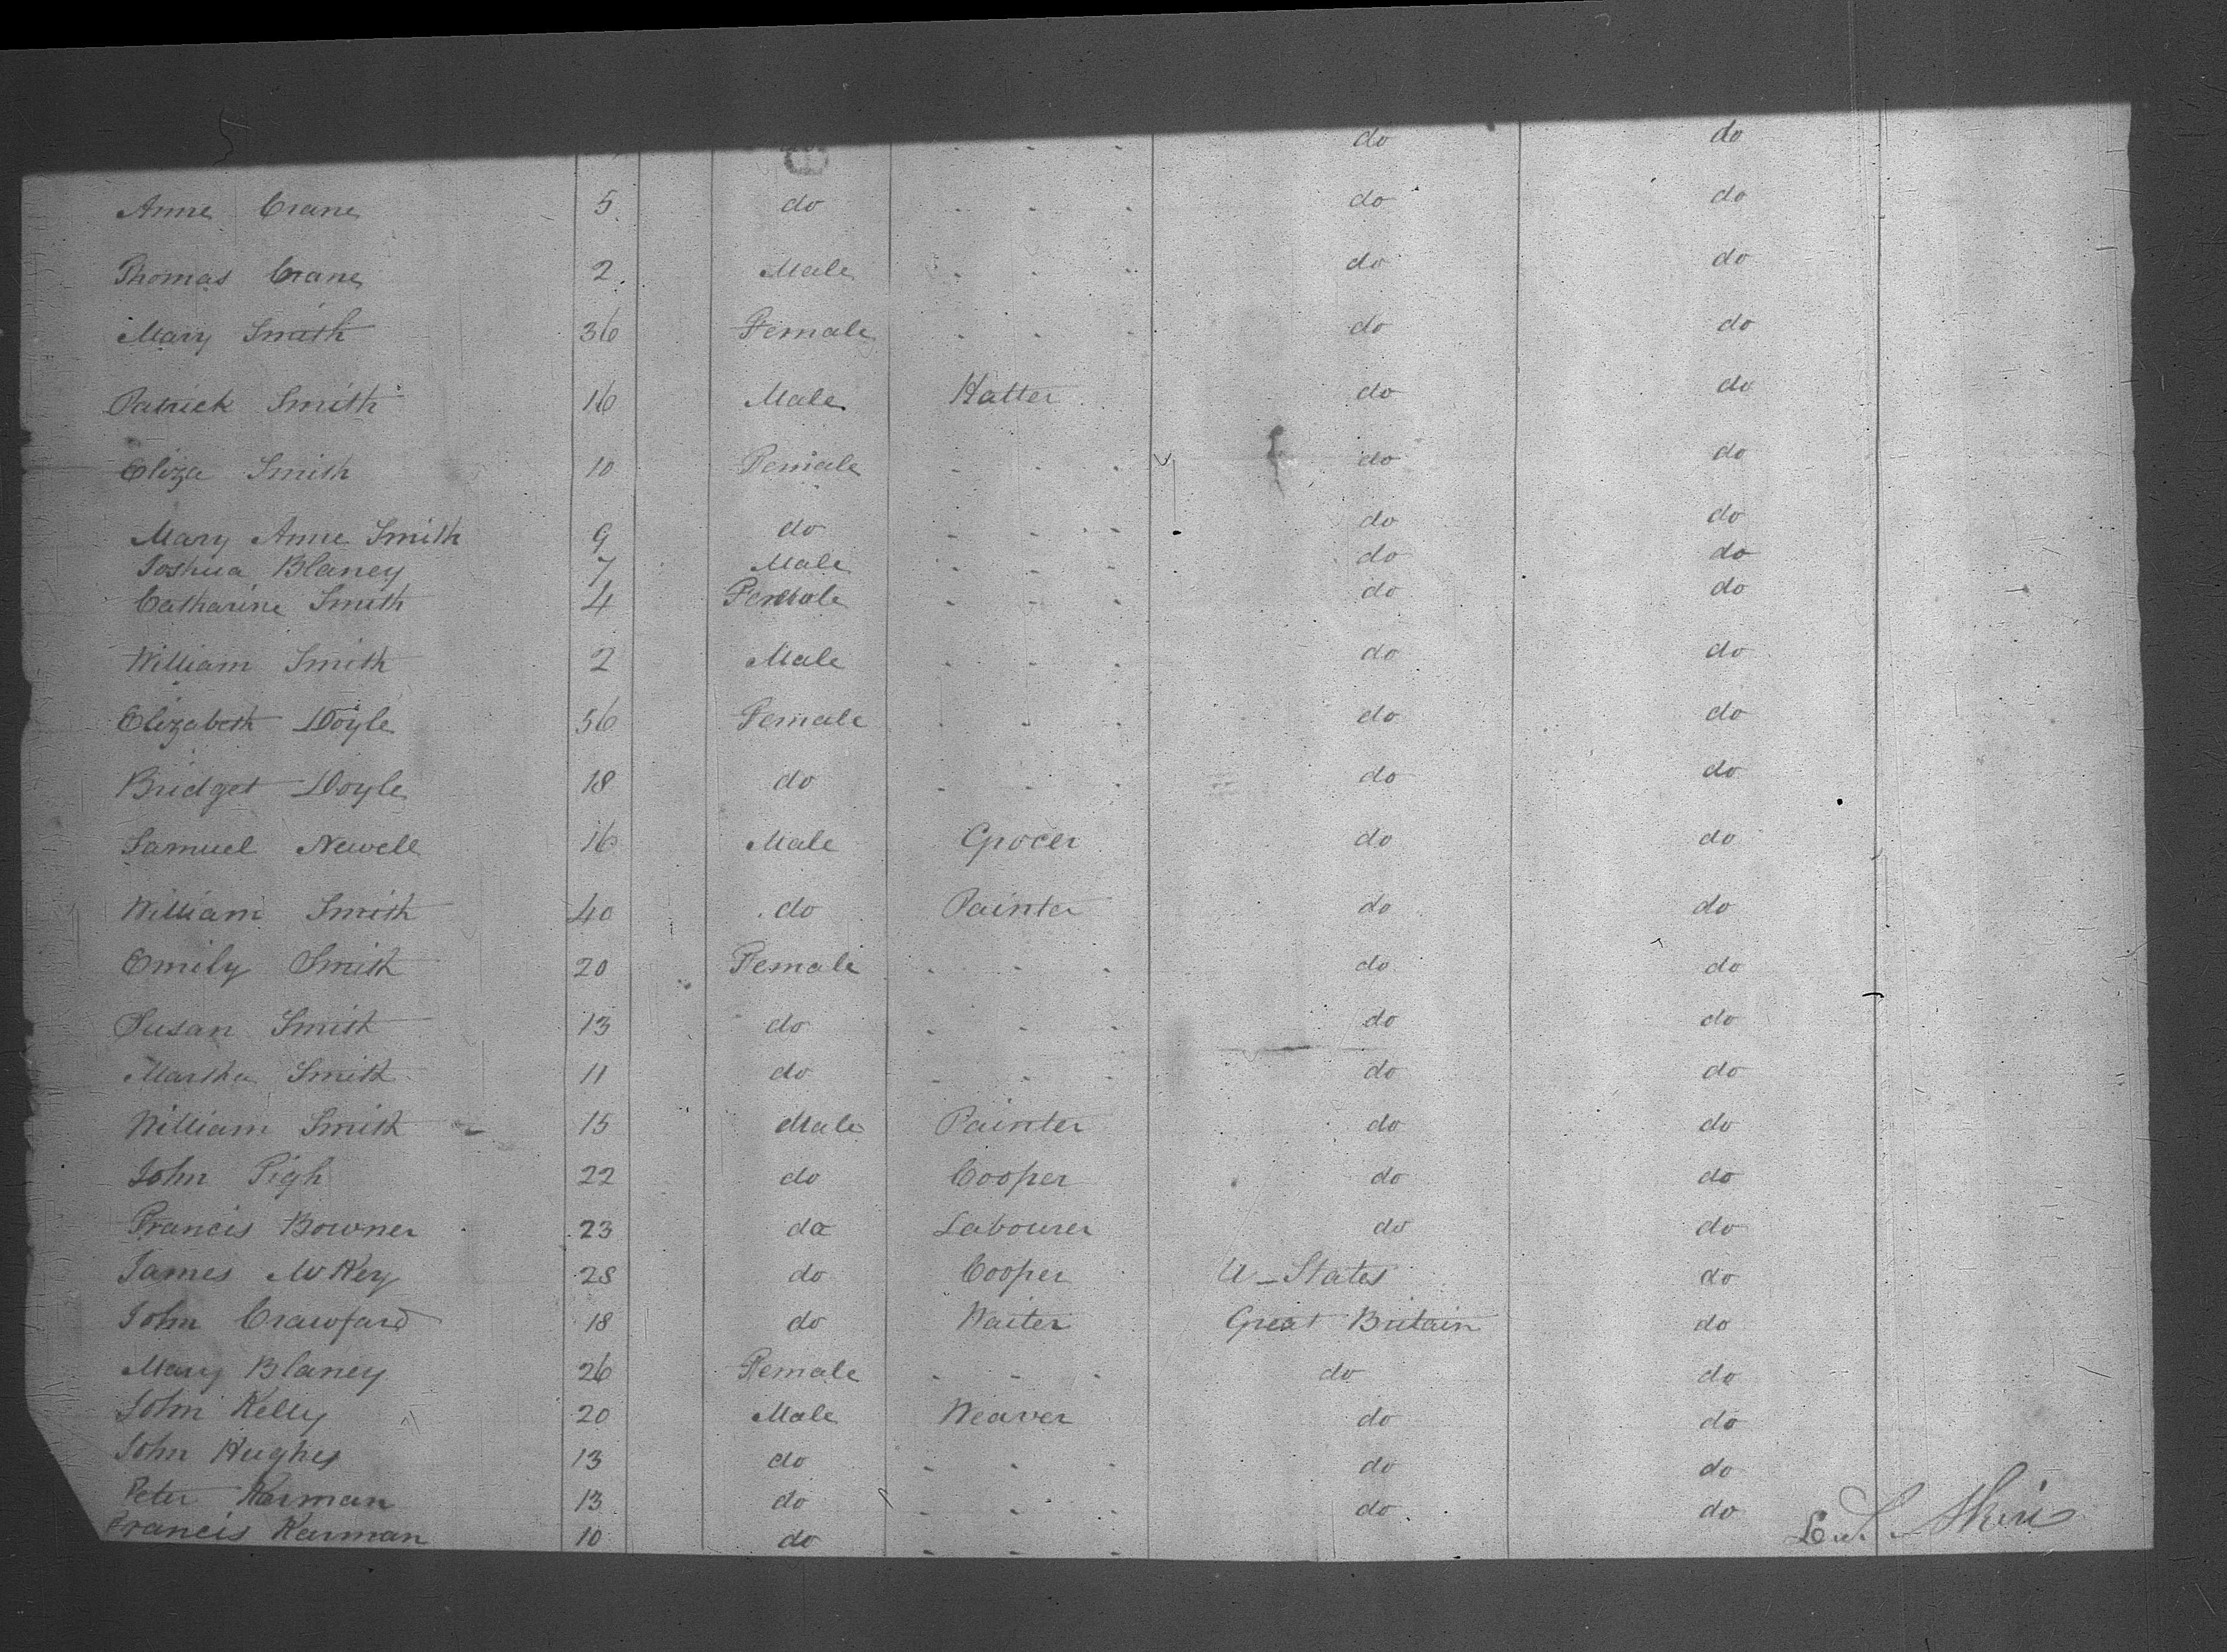 do do
Anne Crane 5 do - - - do do
Thomas Crane 2 Male - - - do do
Mary Smith 36 Female - - - do do
Patrick Smith 16 Male Hatter do do
Eliza Smith 10 Female - - - do do
Mary Anne Smith 9 do - - - do do
Joshua Blaney 7 Male - - - do do
Catharine Smith 4 Female - - - do do
William Smith 2 Male - - - do do
Elizabeth Doyle 56 Female - - - do do
Bridget Doyle 18 do - - - do do
Samuel Newell 16 Male Grocer do do
William Smith 40 do Painter do do
Emily Smith 20 Female - - - do do
Susan Smith 13 do - - - do do
Martha Smith 11 do - - - do do
William Smith 15 Male Painter do do
John Pigh 22 do Cooper do do
Francis Bowner 23 do Labourer do do
James McKey 28 do Cooper U-States do
John Crawford 18 do Waiter Great Britain do
Mary Blaney 26 Female - - - do do
John Kelly 20 Male Weaver do do
John Hughes 13 do - - - do do
Peter Karman 13 do - - - do do
Francis Karman 10 do - - -